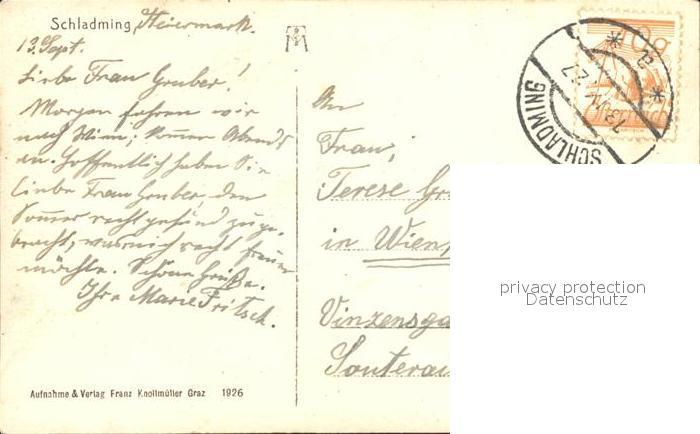 Schladming, Steiermark.
13. Sept.
Liebe Frau Gruber!
Morgen fahren wir
nach Wien, kommen Abends
an. Hoffentlich haben Sie
liebe Frau Gruber, den
Sommer recht gesund zuge-
bracht, was mich recht freuen
möchte. Schöne Grüße.
Ihre Marie Fritsch.
Aufnahme & Verlag Franz Knollmüller Graz 1926
An
Frau,
Terese Gr
in Wien,
Vinzensga
Souterai
10g
SCHLADMING
privacy protection
Datenschutz